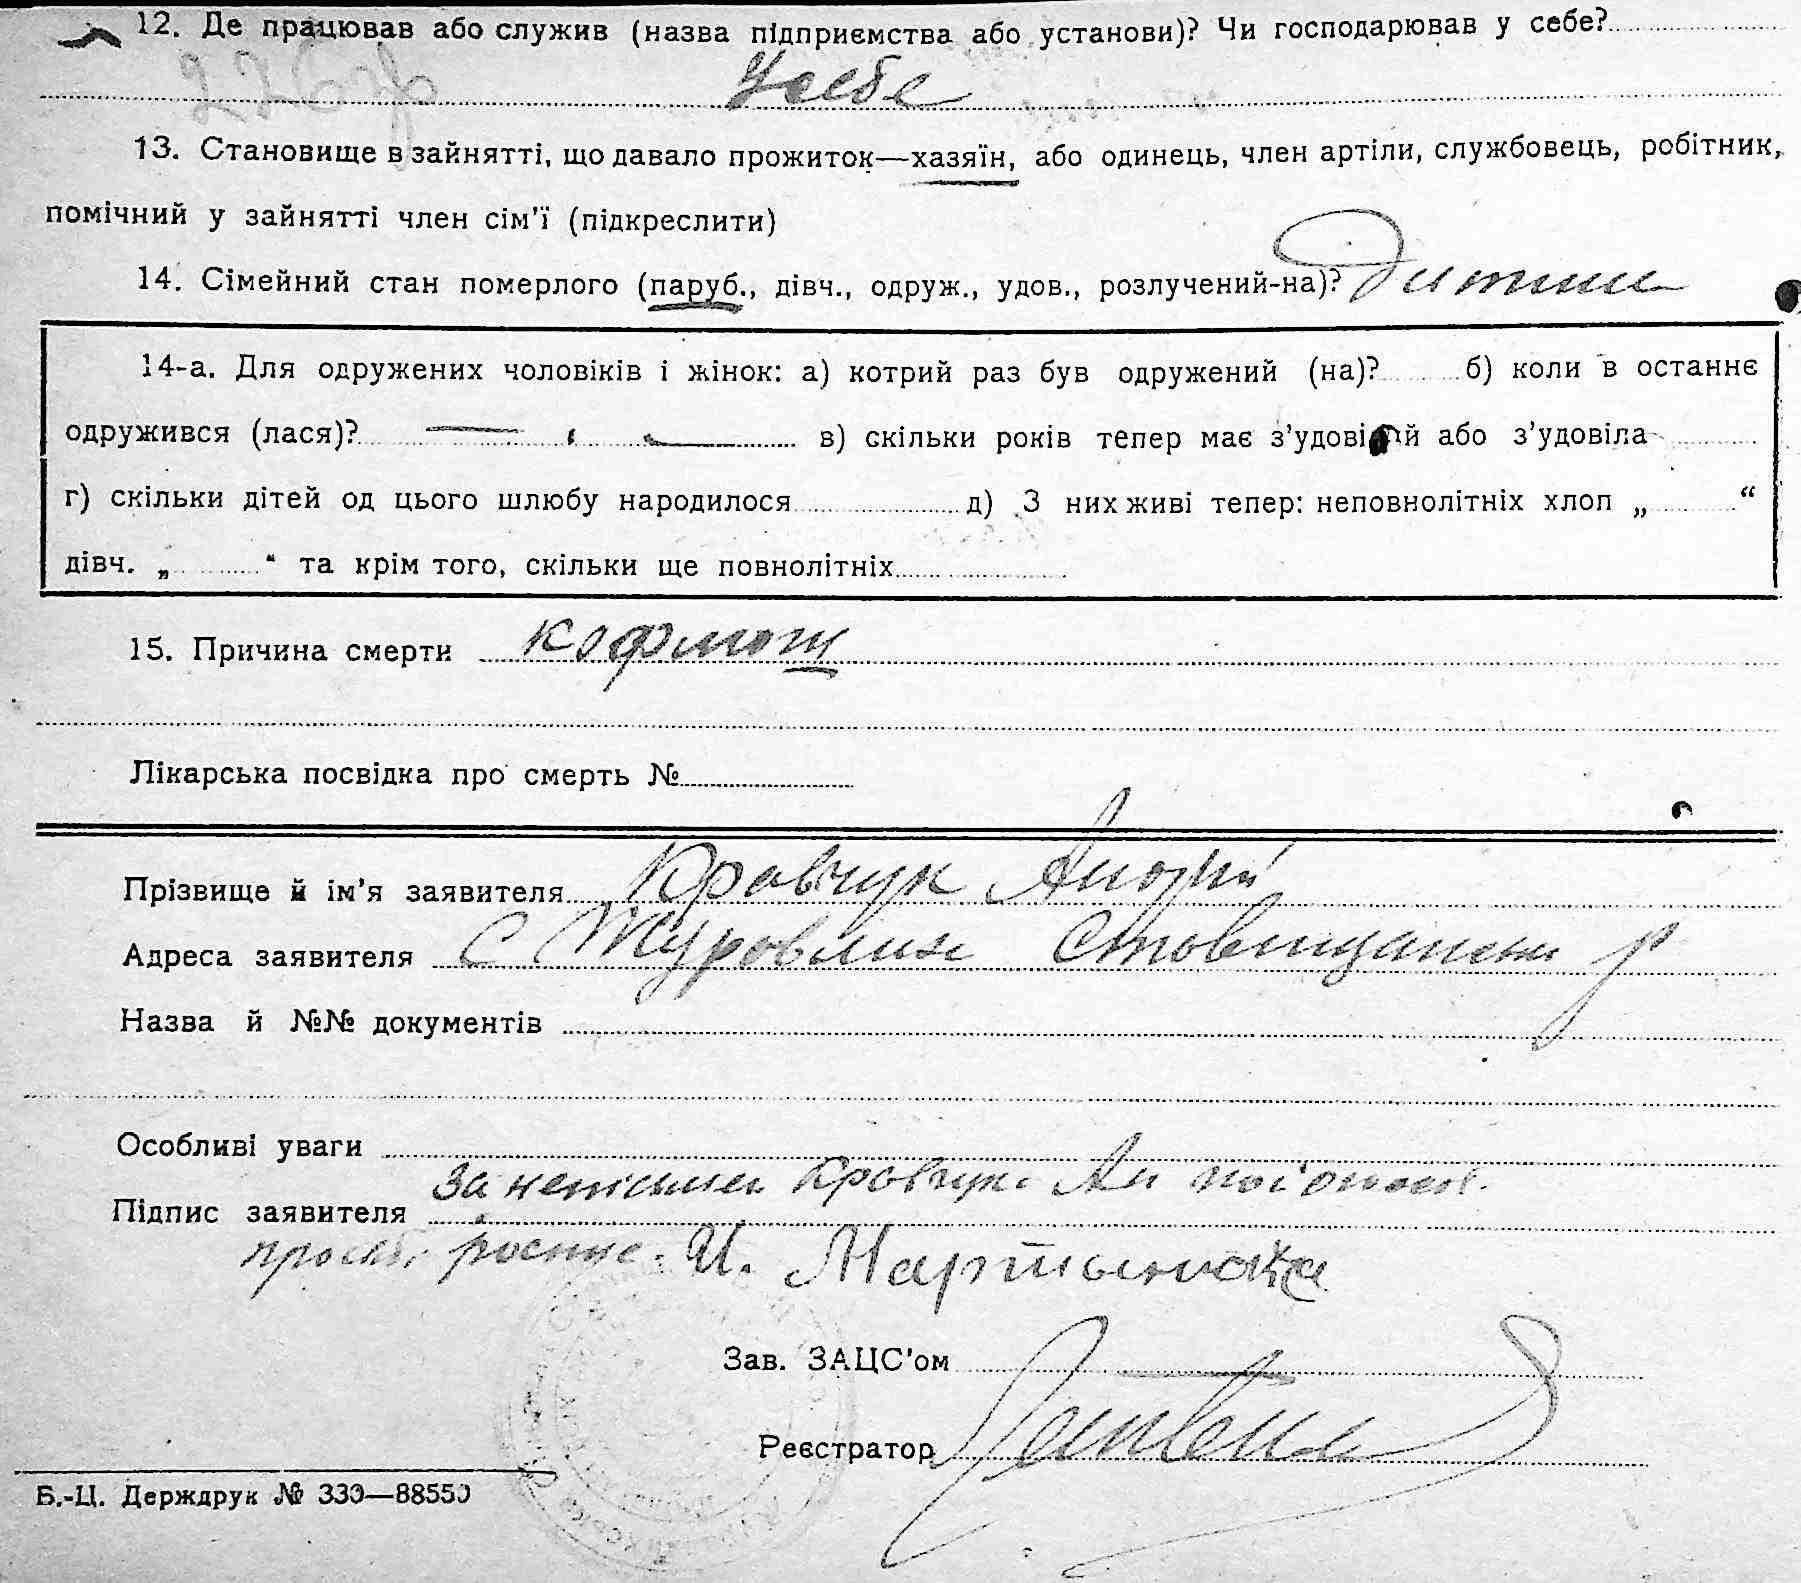 12. Де працював або служив (назва підприємства або установи)? Чи господарював у себе?
У себе
13. Становище в зайнятті, що давало прожиток—хазяїн, або одинець, член артіли, службовець, робітник,
помічний у зайнятті член сім'ї (підкреслити)
14. Сімейний стан померлого (паруб., дівч., одруж., удов., розлучений-на)? Дитина
14-а. Для одружених чоловіків і жінок: а) котрий раз був одружений (на)? б) коли в останнє
одружився (лася)? в) скільки років тепер має з'удовілий або з'удовіла
г) скільки дітей од цього шлюбу народилося д) З них живі тепер: неповнолітніх хлоп „ “
дівч. „ “ та крім того, скільки ще повнолітніх
15. Причина смерти
Лікарська посвідка про смерть №
Прізвище й ім'я заявителя Кравчук Андрій
Адреса заявителя С Журовлиха Ставищанськ р
Назва й №№ документів
Особливі уваги
За неписьмен Кравчук Ан
Підпис заявителя
И. Мартынюка
Зав. ЗАЦС'ом
Реєстратор
Б.-Ц. Держдрук № 330—88550